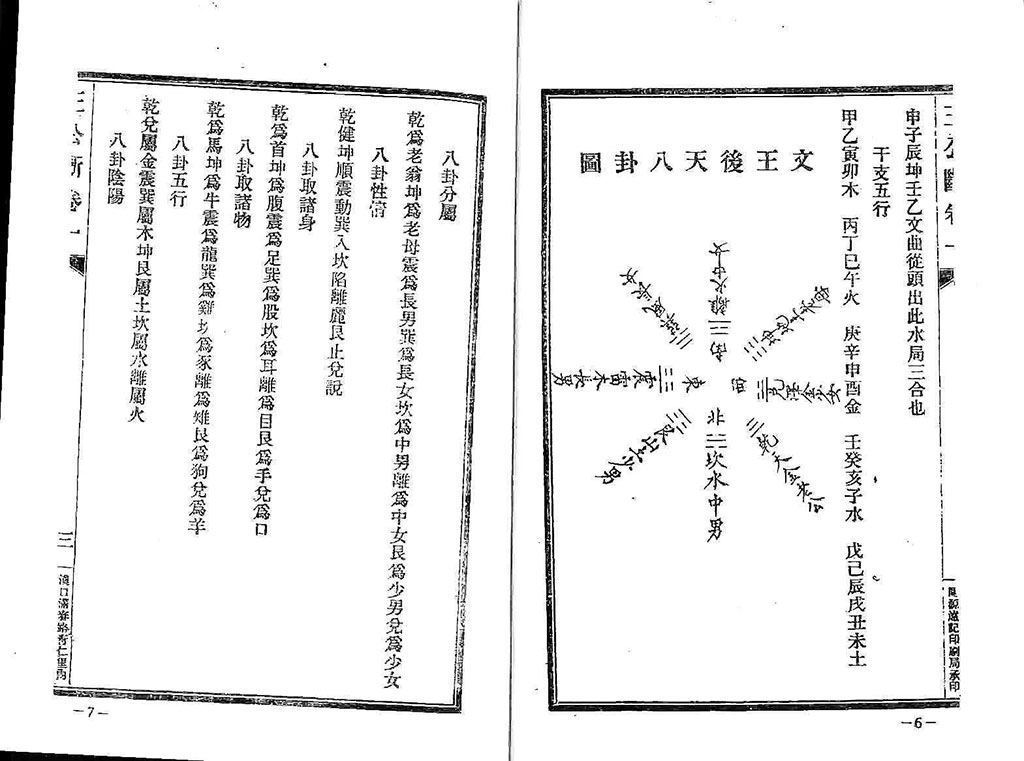 申子辰坤壬乙文曲從頭出此水局三合也
干支五行
甲乙寅卯木　丙丁巳午火　庚辛申酉金　壬癸亥子水　戊己辰戌丑未土
文王後天八卦圖
南 ☲ 離火中女
西 ☱ 兌澤金少女
☰ 乾天金老公
北 ☵ 坎水中男
☶ 艮山土少男
東 ☳ 震雷木長男
—6—
八卦分屬
乾爲老翁坤爲老母震爲長男巽爲長女坎爲中男離爲中女艮爲少男兌爲少女
八卦性情
乾健坤順震動巽入坎陷離麗艮止兌説
八卦取諸身
乾爲首坤爲腹震爲足巽爲股坎爲耳離爲目艮爲手兌爲口
八卦取諸物
乾爲馬坤爲牛震爲龍巽爲雞坎爲豕離爲雉艮爲狗兌爲羊
八卦五行
乾兌屬金震巽屬木坤艮屬土坎屬水離屬火
八卦陰陽
三
—7—